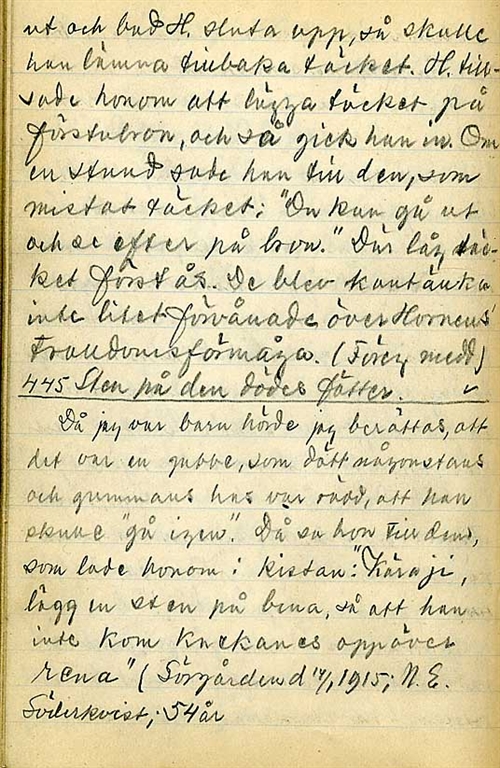 ut och bad H. sluta upp, så skulle
han lämna tillbaka täcket. H. till-
sade honom att lägga täcket på
förstubron, och så gick han in. Om
en stund sade han till den, som
mistat täcket: "Du kan gå ut
och se efter på bron." Där låg täc-
ket förstås. De blev kantänka
inte litet förvånade över Hornens
trolldomsförmåga. (Föreg. medd)
445 Sten på den dödes fötter.
Då jag var barn hörde jag berättas, att
det var en gubbe, som dött någonstans
och gummans hus var rädd, att han
skulle "gå igen". Då sa hon till dem,
som lade honom i kistan: "Kära ji,
lägg en sten på bena, så att han
inte kom knekanes oppöver
rena" (Sörgården d 14/1 1915; N. E.
Söderkvist; 54 år